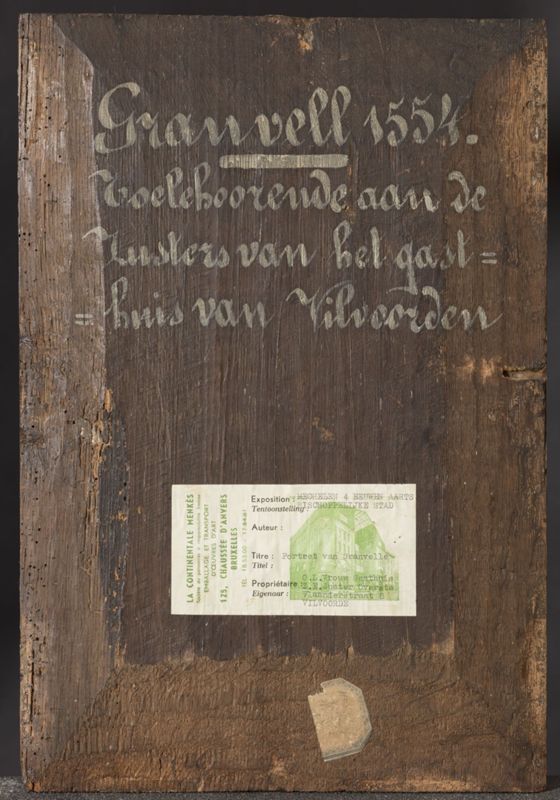 Granvell 1554.
Toelehoorende aan de
Zusters van het gast=
=huis van Vilvoorden
LA CONTINENTALE MENKÈS
EMBALLAGE ET TRANSPORT
D'ŒUVRES D'ART
125, CHAUSSÉE D'ANVERS
BRUXELLES
Exposition : MECHELEN 4 EEUWEN AARTS
Tentoonstelling : BISCHOPPELIJKE STAD
Auteur :
Titre : Portret van Granvelle
Titel :
Propriétaire O.L.Vrouw Gasthuis
Eigenaar : Z.E. Zuster Overste
Vlaanderstraat 6
VILVOORDE